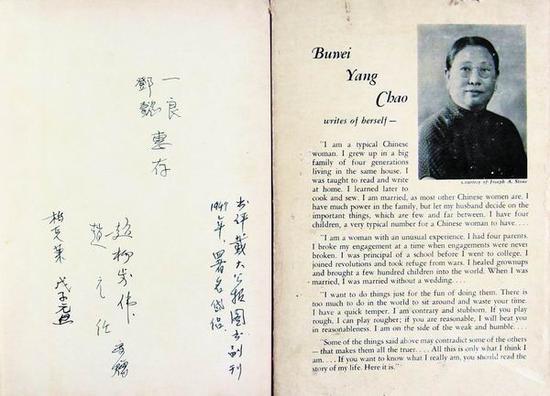 一良
鄧懿 惠存
趙楊步偉
趙元任
柏克萊 戊子元旦
书评载大公报图书副刊
1947年署名
Buwei
Yang
Chao
writes of herself—
Courtesy of Joseph A.
"I am a typical Chinese
woman. I grew up in a big
family of four generations
living in the same house. I
was taught to read and write
at home. I learned later to
cook and sew. I am married, as most other Chinese women are. I
have much power in the family, but let my husband decide on the
important things, which are few and far between. I have four
children, a very typical number for a Chinese woman to have....
"I am a woman with an unusual experience. I had four parents.
I broke my engagement at a time when engagements were never
broken. I was principal of a school before I went to college. I
joined revolutions and took refuge from wars. I healed grownups
and brought a few hundred children into the world. When I was
married, I was married without a wedding....
"I want to do things just for the fun of doing them. There is
too much to do in the world to sit around and waste your time.
I have a quick temper. I am contrary and stubborn. If you play
rough, I can play rougher; if you are reasonable, I will beat you
in reasonableness. I am on the side of the weak and humble....
"Some of the things said above may contradict some of the others
—that makes them all the truer.... All this is only what I think I
am.... If you want to know what I really am, you should read the
story of my life. Here it is."